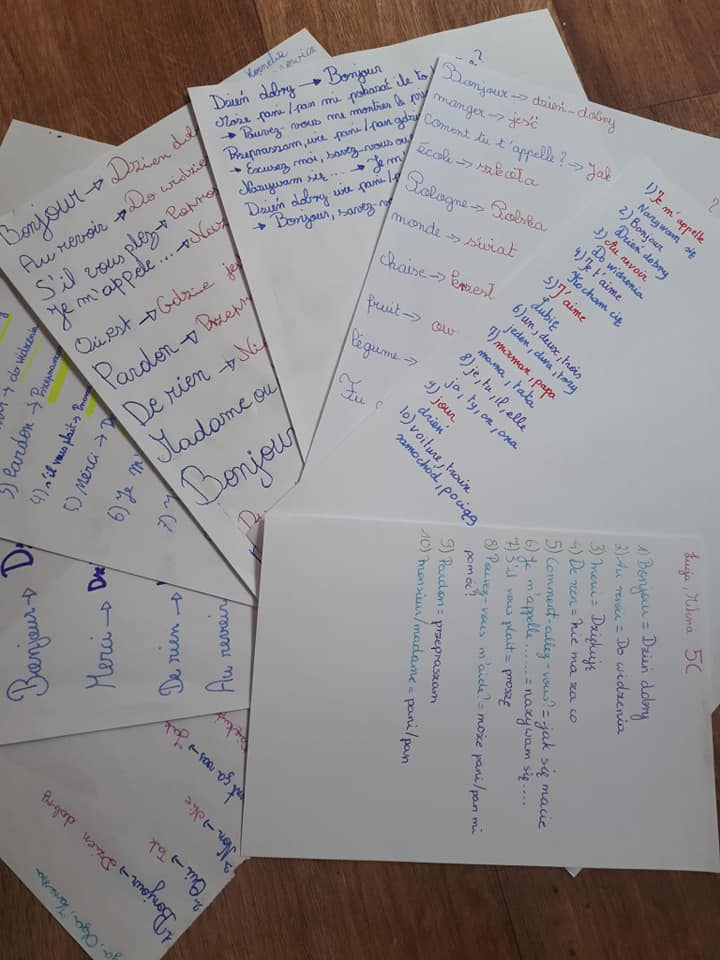 Dzień dobry → Bonjour
Może pani/pan mi pokazać ile to
→ Pouvez-vous me montrer le
Przepraszam, wie pani/pan gdzie
→ Excusez moi, savez-vous ou
Nazywam się... → Je m'
Dzień dobry wie pani/
→ Bonjour, savez-
?
Bonjour → dzień-dobry
manger → jeść
coment tu t'appelle? → Jak
école → szkoła
Pologne → Polska
monde → świat
chaise →
fruit → ow
légume →
Tu
1) Je m'appelle
Nazywam się
2) Bonjour
Dzień dobry
3) Au revoir
Do widzenia
4) Je t'aime
Kocham cię
5) J'aime
Lubię
6) un, deux, trois
jeden, dwa, trzy
7) maman, papa
mama, tata
8) je, tu, il, elle
ja, ty, on, ona
9) jour
dzień
10) voiture, train
samochód, pociąg
Bonjour → Dzien
Au revoir → Do widze
S'il vous plez →
Je m'appele ... →
Ou est → Gdzie je
Pardon → Przepr
De rien → Ni
Madame ou
Bonjour
do widzenia
3) Pardon →
4) s'il vous plaît →
5) Merci → D
6) Je m'
7)
Bonjour → D
Merci →
De rien →
Au revoir
Milena 5C
1) Bonjour = Dzień dobry
2) Au revoir = Do widzenia
3) Merci = Dziękuję
4) De rien = nie ma za co
5) Comment-allez-vous? = jak się macie
6) Je m'apelle ...... = nazywam się ....
7) S'il vous plait = proszę
8) Pouvez-vous m'aide? = może pani/pan mi
pomóc?
9) Pardon = przepraszam
10) monsieur/madame = pani/pan
ça vas → Jak
Non → Nie
2. Oui → Tak
1. Bonjour → Dzien dobry
Olga